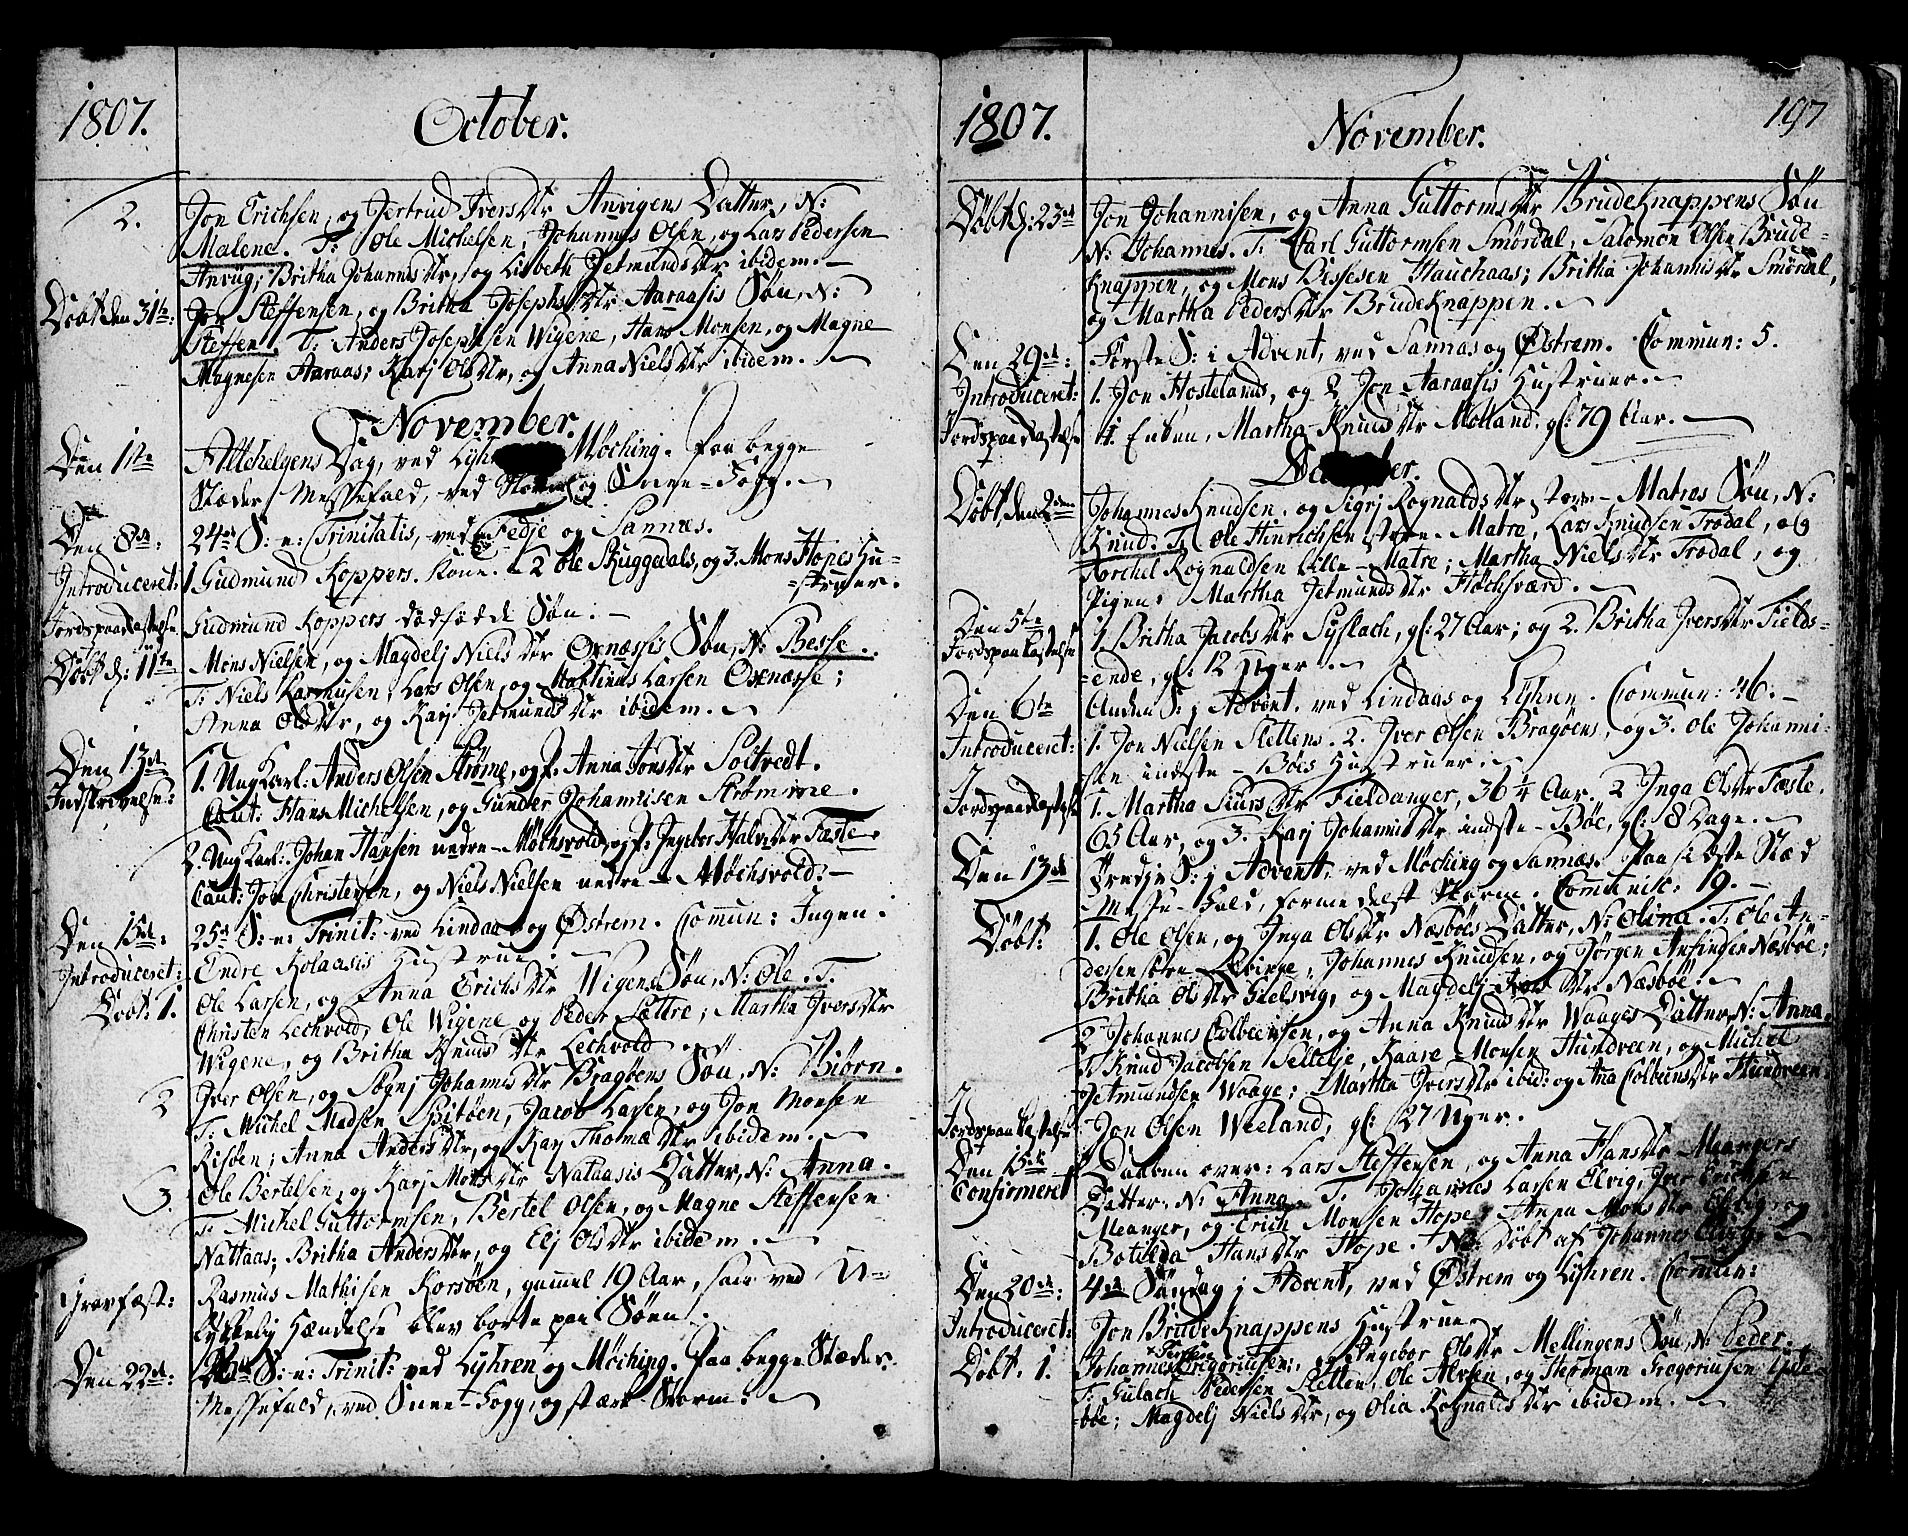 1807.
October.
2.
Jon Erichsen, og Jertrud Ivers Dtr Anvigens Datter, N:
Malene. T: Ole Michelsen, Johannes Olsen, og Lars Pedersen
Anvug; Britha Johannis Dtr, og Lisbeth Jetmunds Dtr ibidem.
Døbt den 31te:
Jon Steffensen, og Britha Josephs Dtr Aaraasis Søn, N:
Steffen. T: Anders Josephsen Wigene, Hans Monsen, og Magne
Magnesen Aaraas; Karj Ols Dtr, og Anna Niels Dtr ibidem.
November.
Den 1te
Allehelgens Dag, ved Møching. Paa begge
Stæder Messefald, ved Storm og Snee-Fogg.
Den 8de
24de S: e: Trinitatis, ved Fedje og Sannæs.
Introduceret:
1. Gudmund Koppers Kone. 2 Ole Ruggedals, og 3. Mons Hopes Hu-
=struer.
Jordspaakastelse
Gudmund Koppers dødfødde Søn.
Døbt d: 11te
Mons Nielsen, og Magdelj Niels Dtr Oxnæssis Søn, N: Besse.
T: Niels Rasmusen, Lars Olsen, og Mattinus Larsen Oxnæsse;
Anna Ols Dtr, og Karj Jetmunds Dtr ibidem.
Den 13de
Indskrivelse:
1. Ung Karl: Anders Olsen Strøme, og P: Anna Jons Dtr Soltvedt.
Caut: Hans Michelsen, og Gunder Johannisen Strømme.
2. Ung Karl: Johan Hansen nedre-Møchsvold, og P: Ingebor Halvers Dtr Fæste.
Caut: Jon Christensen, og Niels Nielsen nedre-Møchsvold.
Den 15de:
25de S: e: Trinit: ved Lindaas og Østrem. Commun: Ingen.
Introduceret:
Endre Kolaasis Hustrue.
Døbt. 1.
Ole Larsen, og Anna Erichs Dtr Wigens Søn, N: Ole. T.
Christen Lechvold, Ole Wigene og Peder Sættre; Martha Ivers Dtr
Wigene, og Britha Knuds Dtr Lechvold
2
Iver Olsen, og Sygnj Johannis Dtr Bragøens Søn, N: Biørn.
T: Michel Madsen Spitøen, Jacob Larsen, og Jon Monsen
Risøen; Anna Anders Dtr, og Kary Thomæ Dtr ibidem.
3.
Ole Bertelsen, og Karj Mons Dtr Nataasis Datter, N: Anna.
T: Michel Guttormsen, Bertel Olsen, og Magne Steffensen
Nattaas; Britha Anders Dtr, og Elj Ols Dtr ibidem.
Gravfæst:
Rasmus Mathisen Korsøen, gammel 19 Aar, som ved U-
lykkelig Hændelse blev borte paa Søen.
Den 22de:
26de S: e: Trinit: ved Lyhren og Møching. Paa begge Stæder
Messefald, ved Snee-Fogg, og stærk Storm.
1807.
November.
197
Døbt d: 23de
Jon Johannisen, og Anna Guttorms Dtr Brudeknappens Søn
N: Johannes. T: Carl Guttormsen Smørdal, Salomon Olsen Brude-
knappen, og Mons Bessesen Hauchaas; Britha Johannis Dtr Smørdal,
og Martha Peders Dtr Brudeknappen.
Den 29de:
Første S: i Advent, ved Sannæs og Østrem. Commun: 5.
Introduceret:
1. Jon Hostelands, og 2 Jon Aaraasis Hustruer.
Jordspaakastelse
1. Enken, Martha Knuds Dtr Molland, gl: 79 Aar.
Døbt, den 2den
Johannes Knudsen, og Sigrj Rognalds Dtr store-Matres Søn, N:
Knud. T: Ole Hinrichsen store-Matre, Lars Knudsen Trodal, og
Torchel Rognaldsen Lille-Matre; Martha Niels Dtr Trodal, og
Pigen: Martha Jetmunds Dtr Høchsværd.
Den 5te
Jordspaakastelse
1. Britha Jacobs Dtr Syslach, gl: 27 Aar; og 2. Britha Ivers Dtr Fields-
=ende, gl: 12 Uger.
Den 6te
Anden S: j Advent, ved Lindaas og Lyhren. Commun: 46.
Introduceret:
1. Jon Nielsen Slettens. 2. Iver Olsen Bragøens, og 3. Ole Johanni-
sen indste-Böes Hustruer.
Jordspaakastelse
1. Martha Siurs Dtr Fieldanger, 36 4 Aar. 2 Inga Ols Dtr Fæste.
65 Aar, og 3. Karj Johannis Dtr indste-Bøe, gl: 8 Dage.
Den 13de
Tredje S: j Advent, ved Møching og Sannæs. Paa sidste Stæd
Messe-Fald, formedelst Storm. Communic: 19.
Døbt:
1. Ole Olsen, og Inga Ols Dtr Næsbøes Datter, N: Olina. T: Ole An-
dessen store Lvinge, Johannes Knudsen, og Jørgen Ansindsen Næsbøe;
Britha Ols Dtr Gielsvig, og Magdelj Ivers Dtr Næsbøe.
2 Johannes Colbeensen, og Anna Knuds Dtr Waages Datter, N: Anna.
T: Knud Jacobsen Sellelje, Kaare Monsen Hundveen, og Michel
Jetmundsen Waage; Martha Ivers Dtr ibid: og Ana Colbeens Dtr Hundveen
Jordspaakastelse
Jon Olsen Weeland, gl: 27 Uger.
Den 15de
Confirmeret
Daaben over: Lars Steffensen, og Anna Hans Dtr Meangers
Datter, N: Anna. T. Johannes Larsen Elvig, Iver Erichsen
Meanger, og Erich Monsen Hope; Anna Mons Dtr Elvig, og
Botilda Hans Dtr Hope. NB: Døbt af Johannes Elvig.
Den 20de:
4de Søndag j Advent, ved Østrem og Lyhren. Commun:
Introduceret:
Jon Brudeknappens Hustrue.
Døbt. 1.
Johannes Gregoriusen, og Ingebor Ols Dtr Mellingens Søn, N: Peder.
T: Gulach Pedersen Sletten, Ole Alvsen, og Herman Gregoriusen
=bøe; Magdelj Niels Dtr, og Olia Rognalds Dtr ibidem.